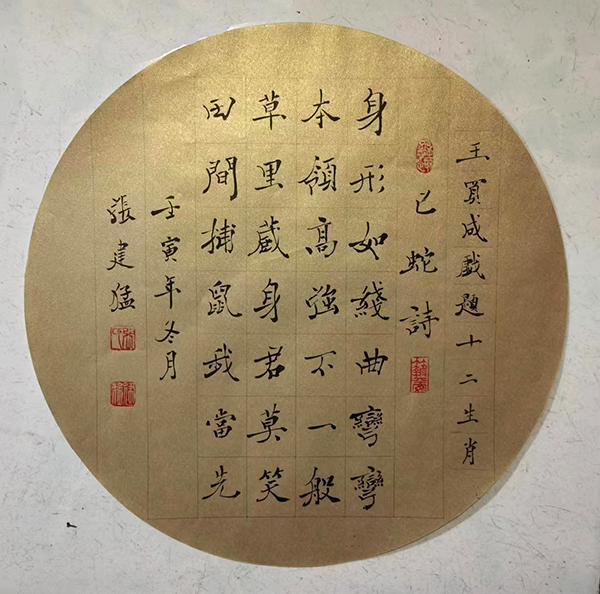 王買成戲題十二生肖
巳蛇詩
身形如綫曲彎彎
本領高強不一般
草里藏身君莫笑
田間捕鼠我當先
壬寅年冬月
張建猛